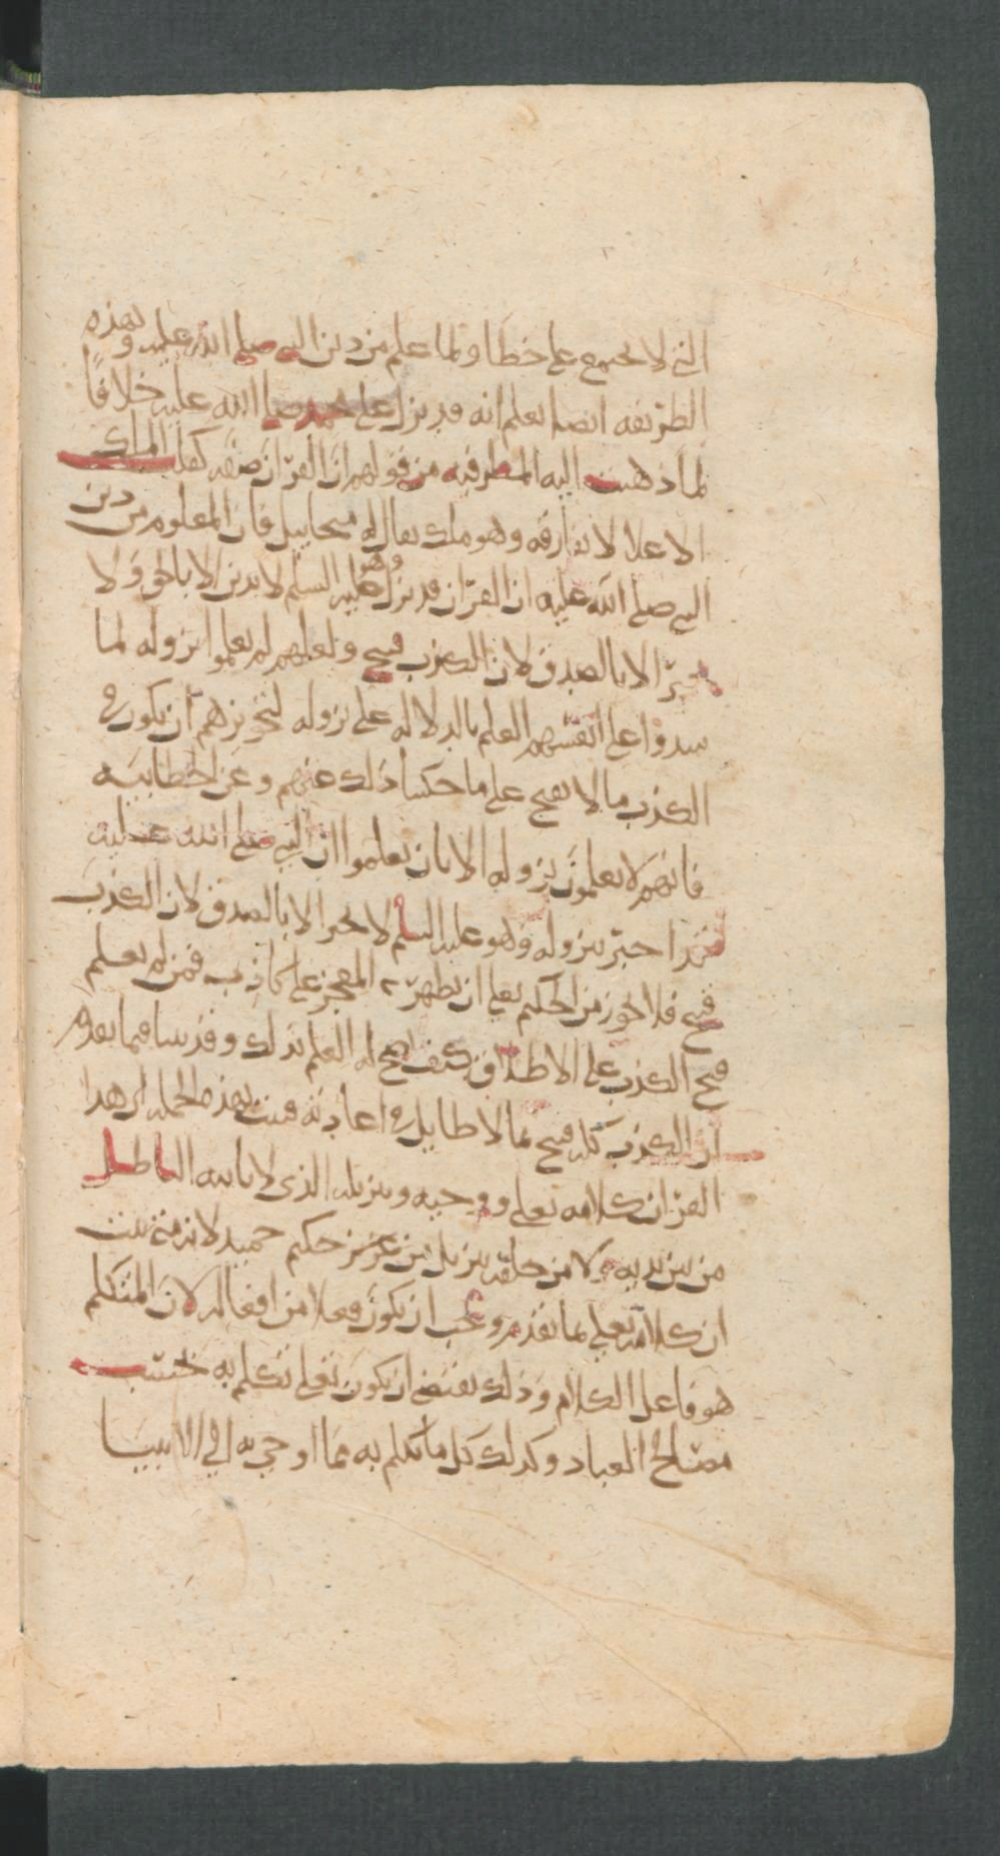 التي لا تجتمع على خطا ولما علم من دين النبي صلى الله عليه وبهذه
الطريقه ايضا يعلم انه قد نزل على محمد صلى الله عليه خلافا
لما ذهبت اليه المطرفيه من قولهم ان القران صفه لقلب الملك
الاعلا لا تفارقه وهو ملك يقال له ميخاييل فان المعلوم من دين
النبي صلى الله عليه ان القران قد نزل عليه وهو عليه السلم لا يدين الا بالحق ولا
يخبر الا بالصدق لان الكذب قبيح ولعلهم لم يعلموا نزوله لما
سدوا على انفسهم العلم بالدلاله على نزوله لتجويزهم ان يكون في
الكذب ما لا يقبح على ما حكينا ذلك عنهم وعن الخطابيه
فانهم لا يعلمون نزوله الا بان يعلموا ان النبي صلى الله عليه
قد اخبر بنزوله وهو عليه السلم لا يخبر الا بالصدق لان الكذب
قبيح فلا يجوز من الحكيم تعلى ان يظهر المعجز على كاذب فمن لم يعلم
قبح الكذب على الاطلاق كيف يصح له العلم بذلك وقد بينا فيما تقدم
ان الكذب كله قبيح بما لا طايل في اعادته فثبت بهذه الجمله ان هذا
القران كلامه تعلى ووحيه وتنزيله الذي لا ياتيه الباطل
من بين يديه ولا من خلفه تنزيل من عزيز حكيم حميد لانه متى ثبت
ان كلامه تعلى بما تقدم وجب ان يكون فعلا من افعاله لان المتكلم
هو فاعل الكلام وذلك يقتضي ان يكون تعلى تكلم به بحسب
مصالح العباد وكذلك كل ما تكلم به مما اوحى به الى الانبيا